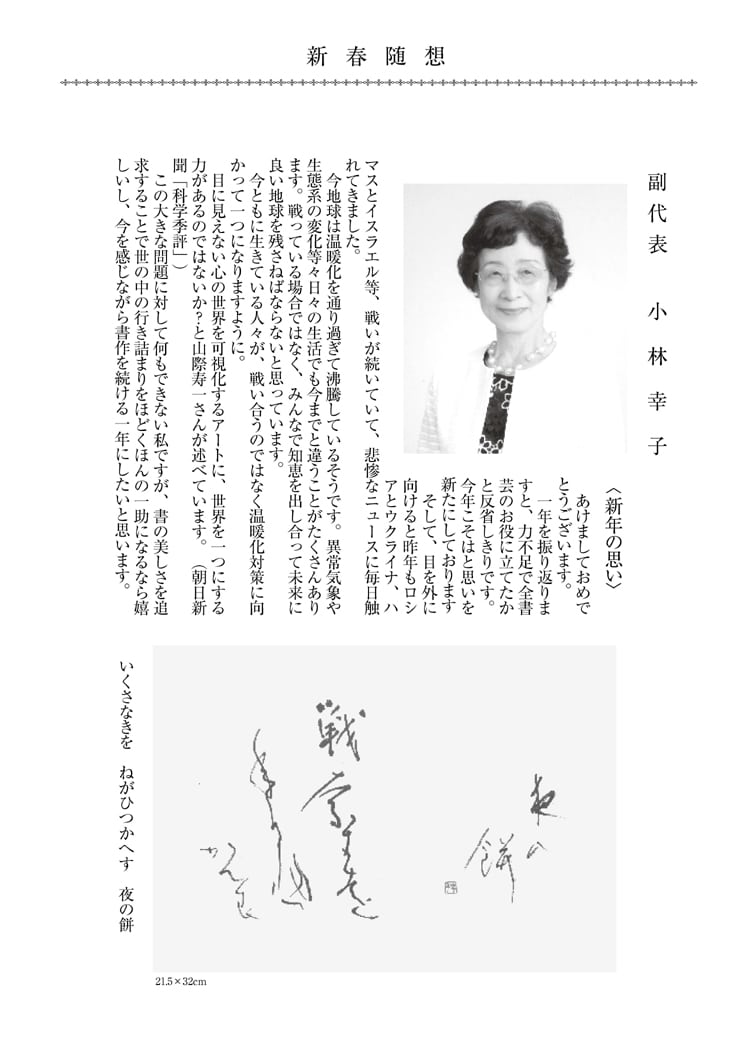 新春随想
副代表　小林幸子
〈新年の思い〉
　あけましておめで
とうございます。
　一年を振り返りま
すと、力不足で全書
芸のお役に立てたか
と反省しきりです。
今年こそはと思いを
新たにしております
　そして、目を外に
向けると昨年もロシ
アとウクライナ、ハ
マスとイスラエル等、戦いが続いていて、悲惨なニュースに毎日触
れてきました。
　今地球は温暖化を通り過ぎて沸騰しているそうです。異常気象や
生態系の変化等々日々の生活でも今までと違うことがたくさんあり
ます。戦っている場合ではなく、みんなで知恵を出し合って未来に
良い地球を残さねばならないと思っています。
　今ともに生きている人々が、戦い合うのではなく温暖化対策に向
かって一つになりますように。
　目に見えない心の世界を可視化するアートに、世界を一つにする
力があるのではないか？と山際寿一さんが述べています。（朝日新
聞「科学季評」）
　この大きな問題に対して何もできない私ですが、書の美しさを追
求することで世の中の行き詰まりをほどくほんの一助になるなら嬉
しいし、今を感じながら書作を続ける一年にしたいと思います。
夜の
餅
戦
いくさなきを　ねがひつかへす　夜の餅
21.5×32cm